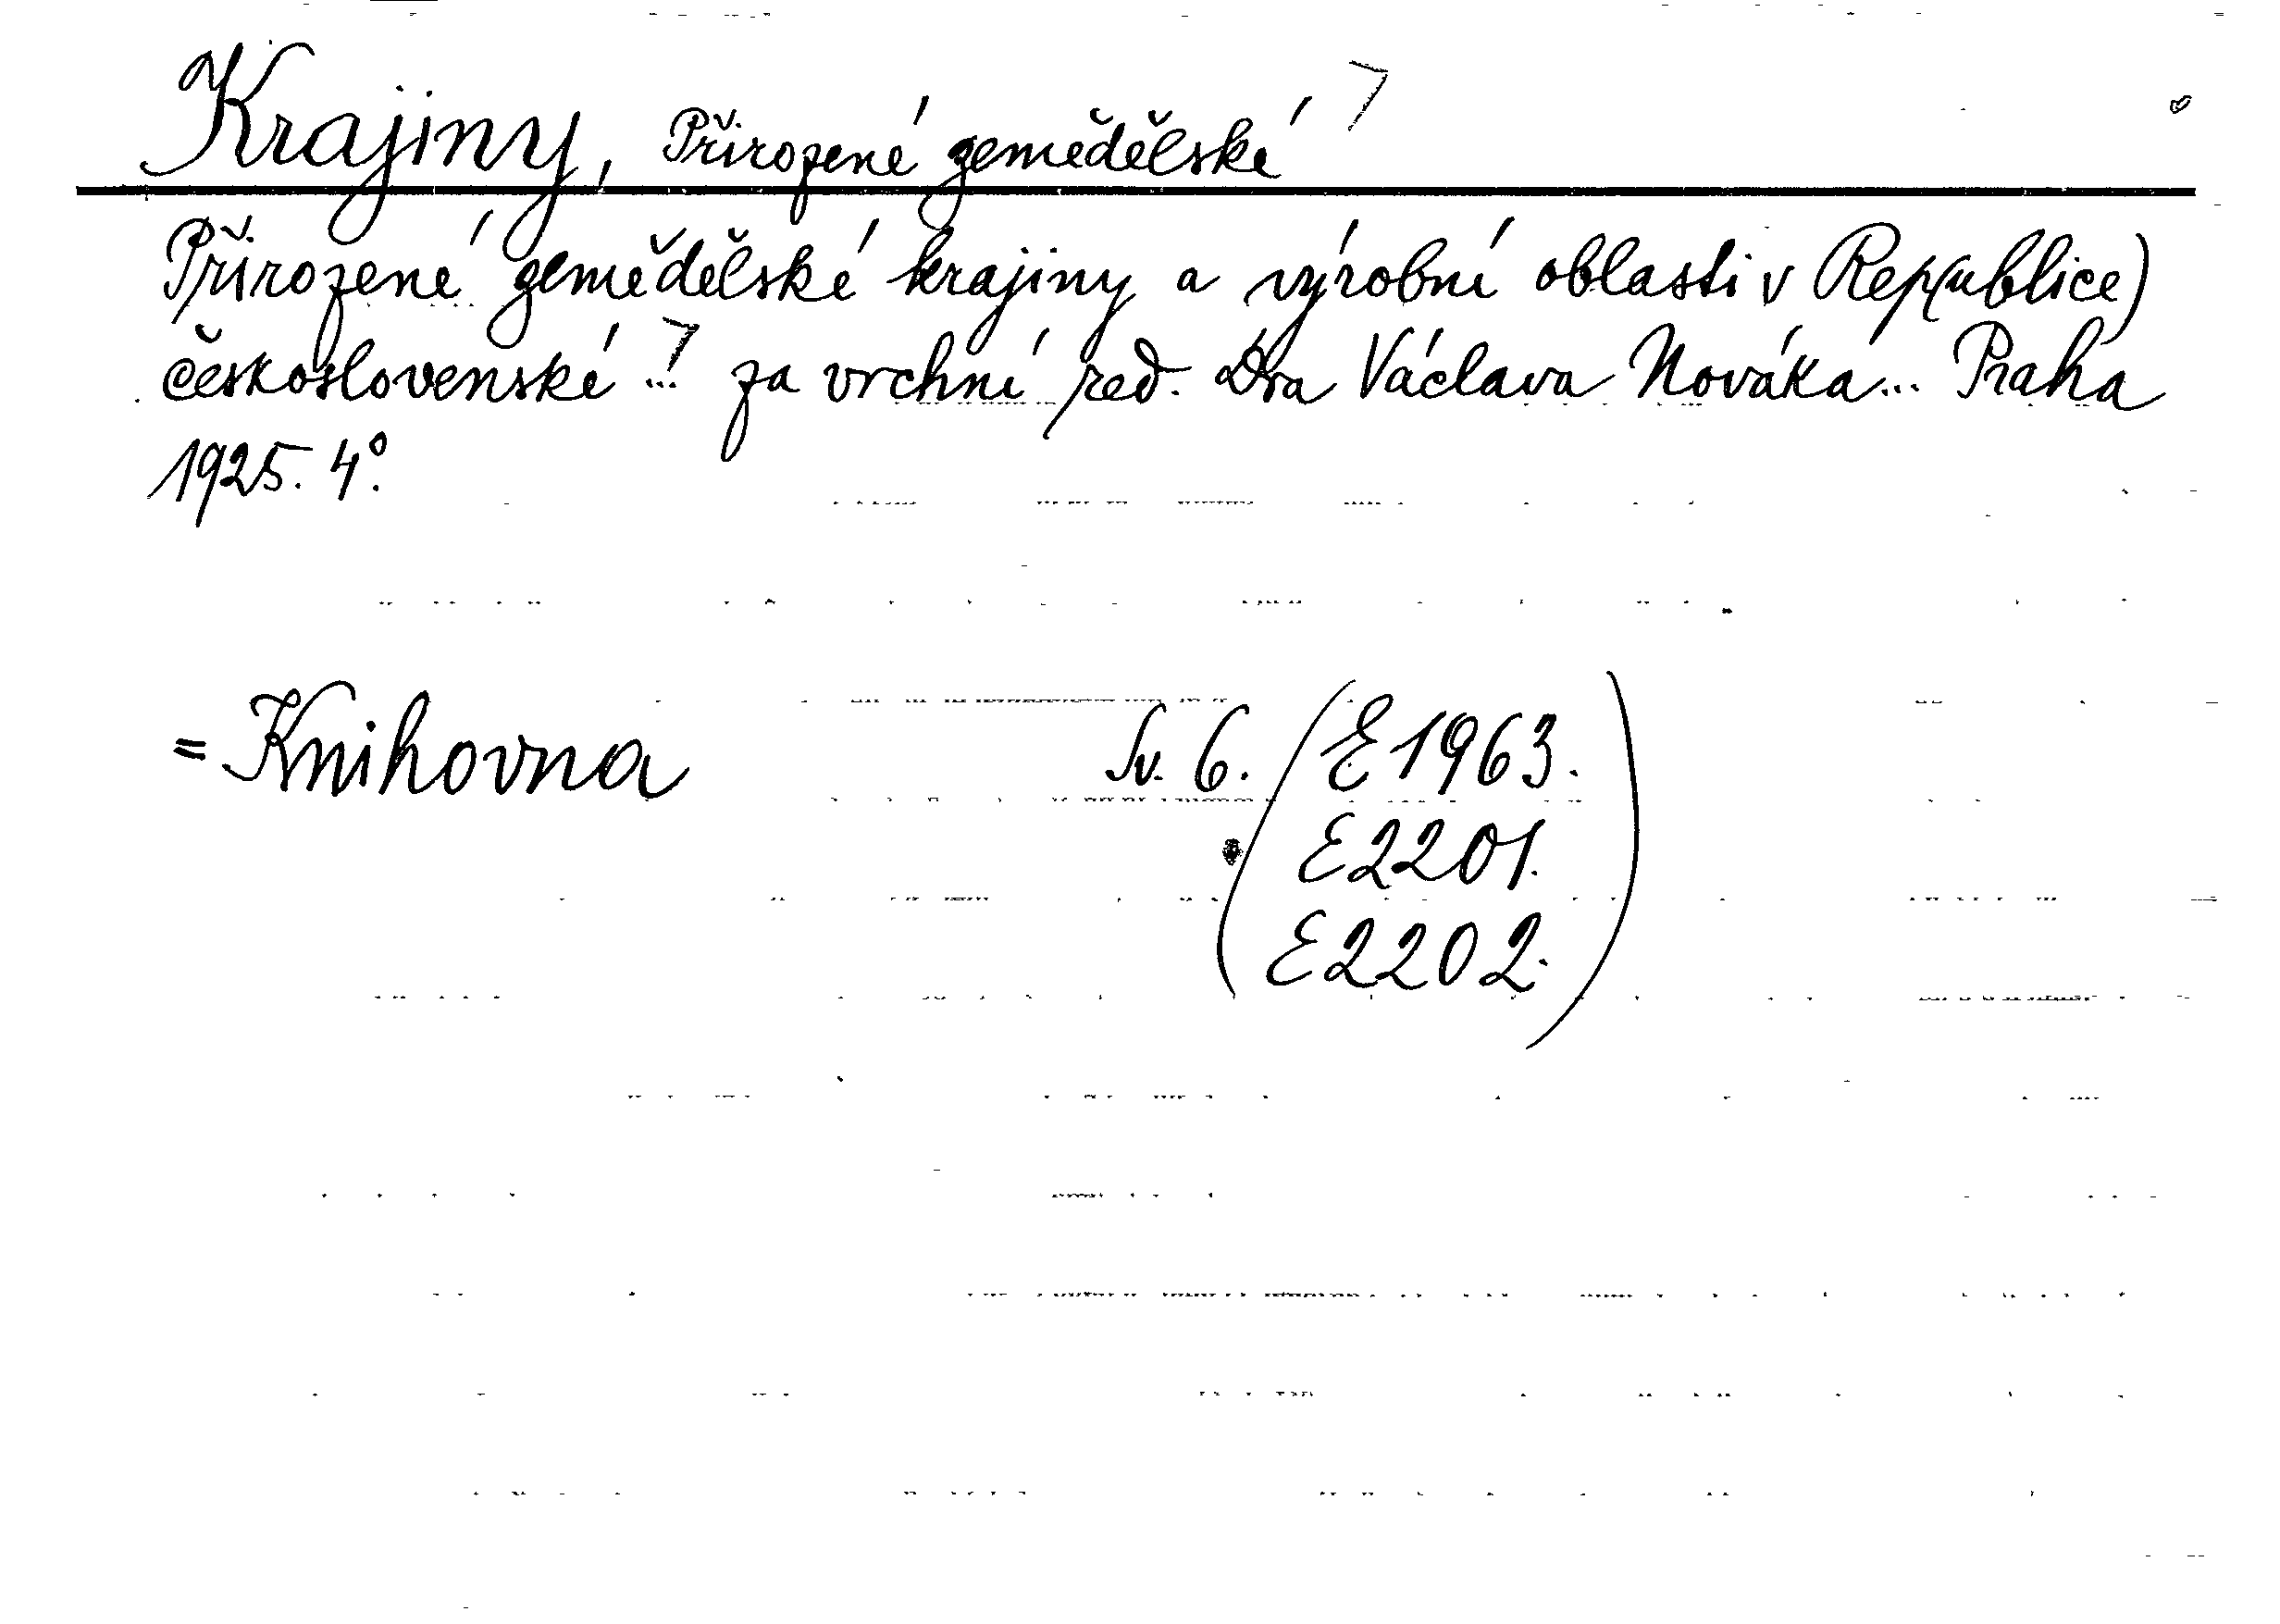 Krajiny, Přirozené zemědělské
Přirozené zemědělské krajiny a výrobní oblasti v Rep(ublice)
československé ... za vrchní red. Dra Václava Nováka ... Praha
1925. 4°.
= Knihovna Sv. 6. (E1963.
E2201.
E2202.)